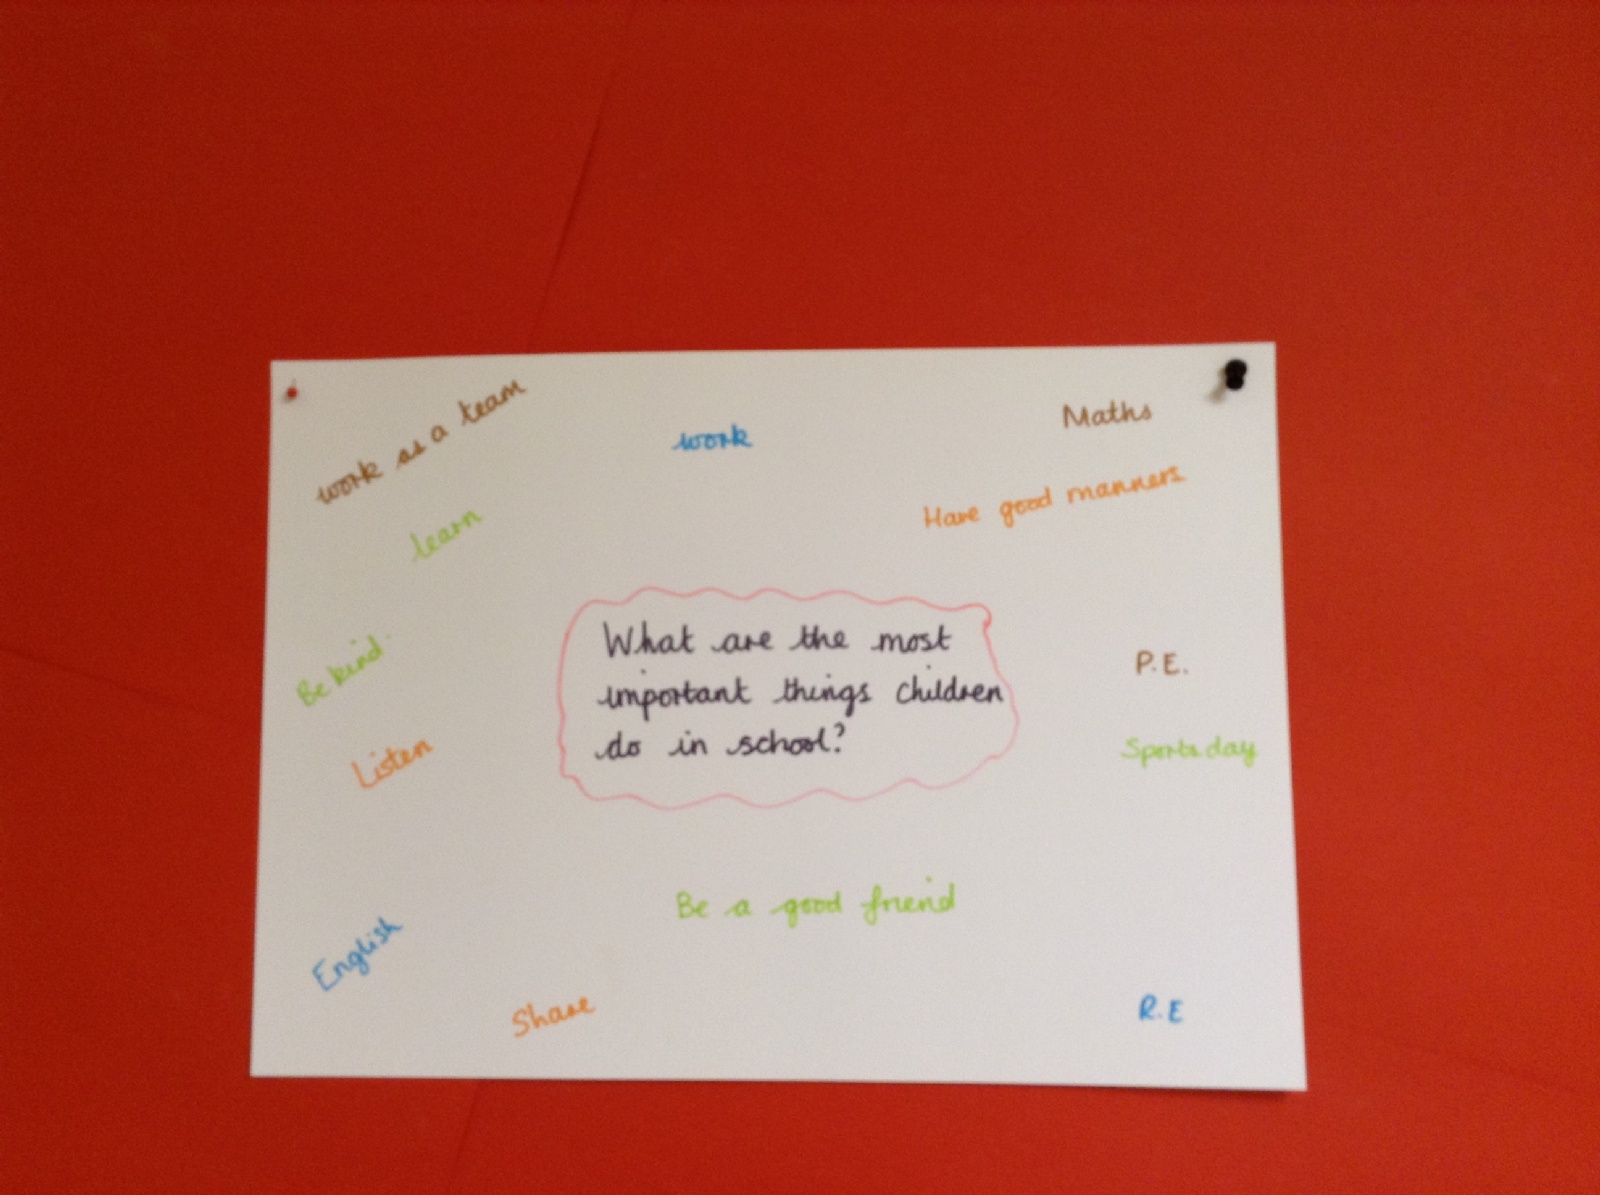 work as a team
work
Maths
Have good manners
learn
What are the most
important things children
do in school?
Be kind
P.E.
Listen
Sports day
Be a good friend
English
Share
R.E